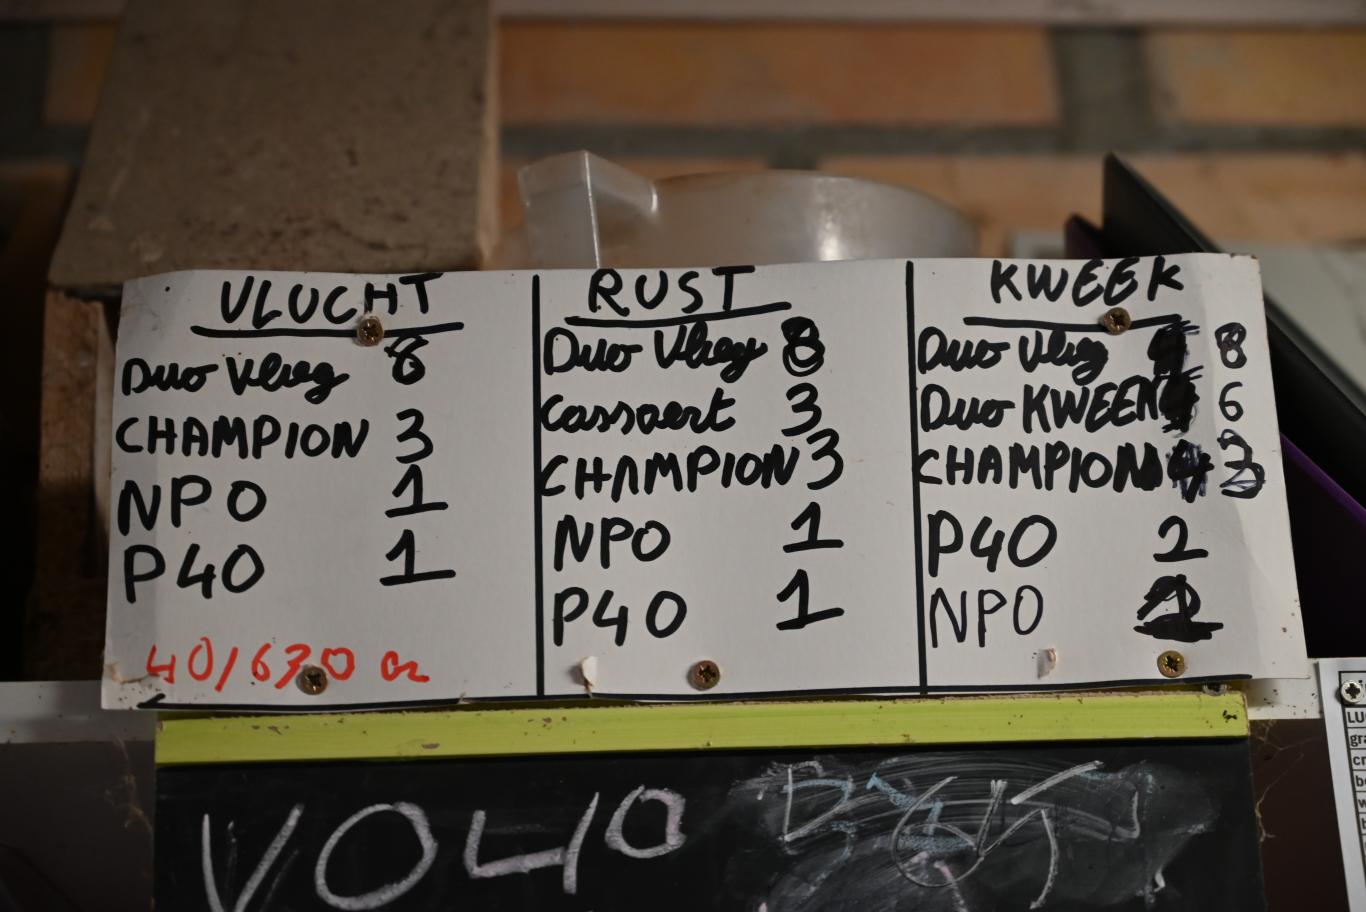 VLUCHT
Duo Vlieg 8
CHAMPION 3
NPO 1
P40 1
40/630 
RUST
Duo Vlieg 8
Cassaert 3
CHAMPION 3
NPO 1
P40 1
KWEEK
Duo Vlieg 8
Duo KWEEK 6
CHAMPION 3
P40 2
NPO
VO40
LU
gra